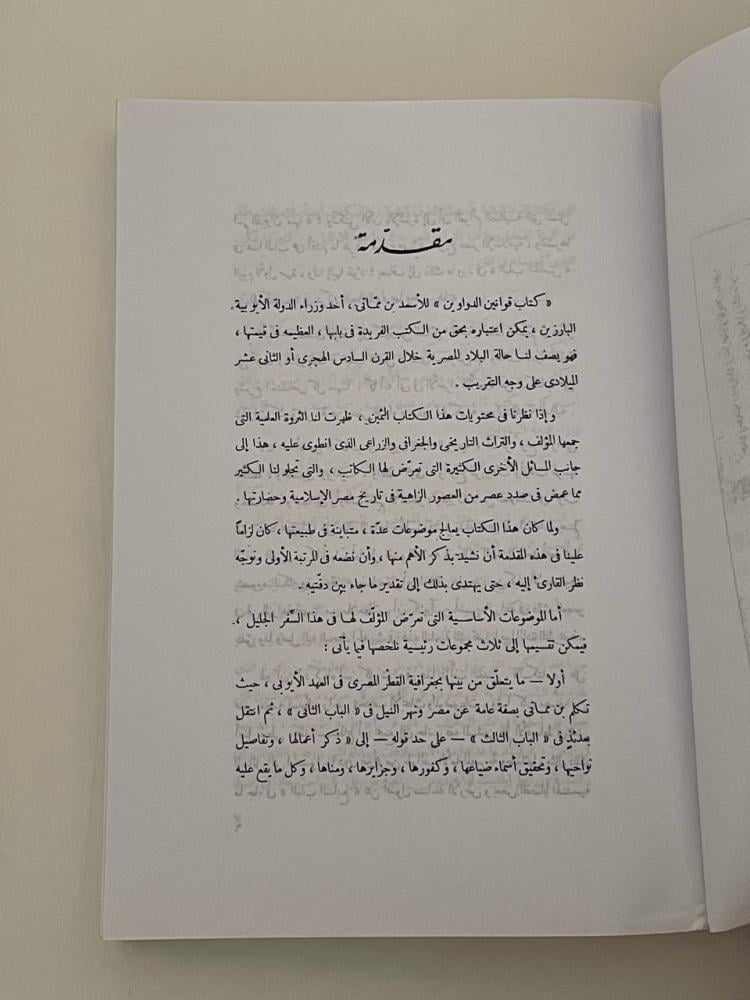 مقدّمة
« كتاب قوانين الدواوين » للأسعد بن ممّاتى ، أحد وزراء الدولة الأيوبية
البارزين ، يمكن اعتباره بحق من الكتب الفريدة فى بابها ، العظيمه فى قيمتها ،
فهو يصف لنا حالة البلاد المصرية خلال القرن السادس الهجرى أو الثانى عشر
الميلادى على وجه التقريب .
وإذا نظرنا فى محتويات هذا الكتاب الثمين ، ظهرت لنا الثروة العلمية التى
جمعها المؤلف ، والتراث التاريخى والجغرافى والزراعى الذى انطوى عليه ، هذا إلى
جانب المسائل الأخرى الكثيرة التى تعرّض لها الكاتب ، والتى تجلو لنا الكثير
مما غمض فى صدد عصر من العصور الزاهية فى تاريخ مصر الإسلامية وحضارتها .
ولما كان هذا الكتاب يعالج موضوعات عدّة ، متباينة فى طبيعتها ، كان لزاماً
علينا فى هذه المقدمة أن نشيد بذكر الأهم منها ، وأن نضعه فى المرتبة الأولى ونوجّه
نظر القارئ إليه ، حتى يهتدى بذلك إلى تقدير ما جاء بين دفّتيه .
أما الموضوعات الأساسية التى تعرّض المؤلّف لها فى هذا السِّفر الجليل ،
فيمكن تقسيمها إلى ثلاث مجموعات رئيسية نلخصها فيما يأتى :
أولا — ما يتعلّق من بينها بجغرافية القطر المصرى فى العهد الأيوبى ، حيث
تكلم بن مماتى بصفة عامة عن مصر ونهر النيل فى « الباب الثانى » ، ثم انتقل
بعدئذٍ فى « الباب الثالث » — على حد قوله — إلى « ذكر أعمالها ، وتفاصيل
نواحيها ، وتحقيق أسماء ضياعها ، وكفورها ، وجزايرها ، ومناها ، وكل ما يقع عليه